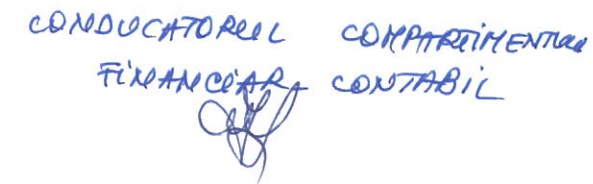 CONDUCATORUL COMPARTIMENTUL
FINANCIAR CONTABIL